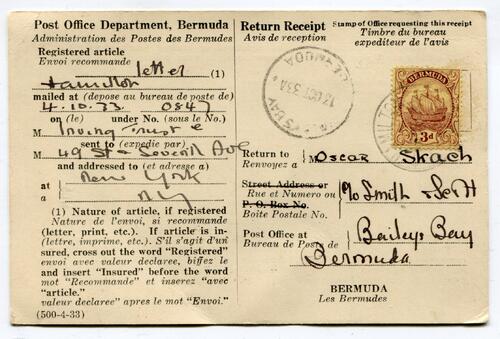 Post Office Department, Bermuda
Administration des Postes des Bermudes
Registered article
Envoi recommande letter (1)
Hamilton
mailed at (depose au bureau de poste de)
4.10.33 0847
on (le) under No. (sous le No.)
M Irving Trust
sent to (expedie par)
M 49 St - Seventh Ave
and addressed to (et adresse a)
at New York
a NY
(1) Nature of article, if registered
Nature de l'envoi, si recommande
(letter, print, etc.). If article is in-
(lettre, imprime, etc.). S'il s'agit d'un
sured, cross out the word "Registered"
envoi avec valeur declaree, biffez le
and insert "Insured" before the word
mot "Recommande" et inserez "avec
"article."
valeur declaree" apres le mot "Envoi."
(500-4-33)
Return Receipt
Avis de reception
Stamp of Office requesting this receipt
Timbre du bureau
expediteur de l'avis
BERMUDA
13 OCT 33
BERMUDA
3d
Return to
Renvoyez a M Oscar Skach
Street Address or
Rue et Numero ou c/o Smith
P. O. Box No.
Boite Postale No.
Post Office at Baileys Bay
Bureau de Poste de Bermuda
BERMUDA
Les Bermudes